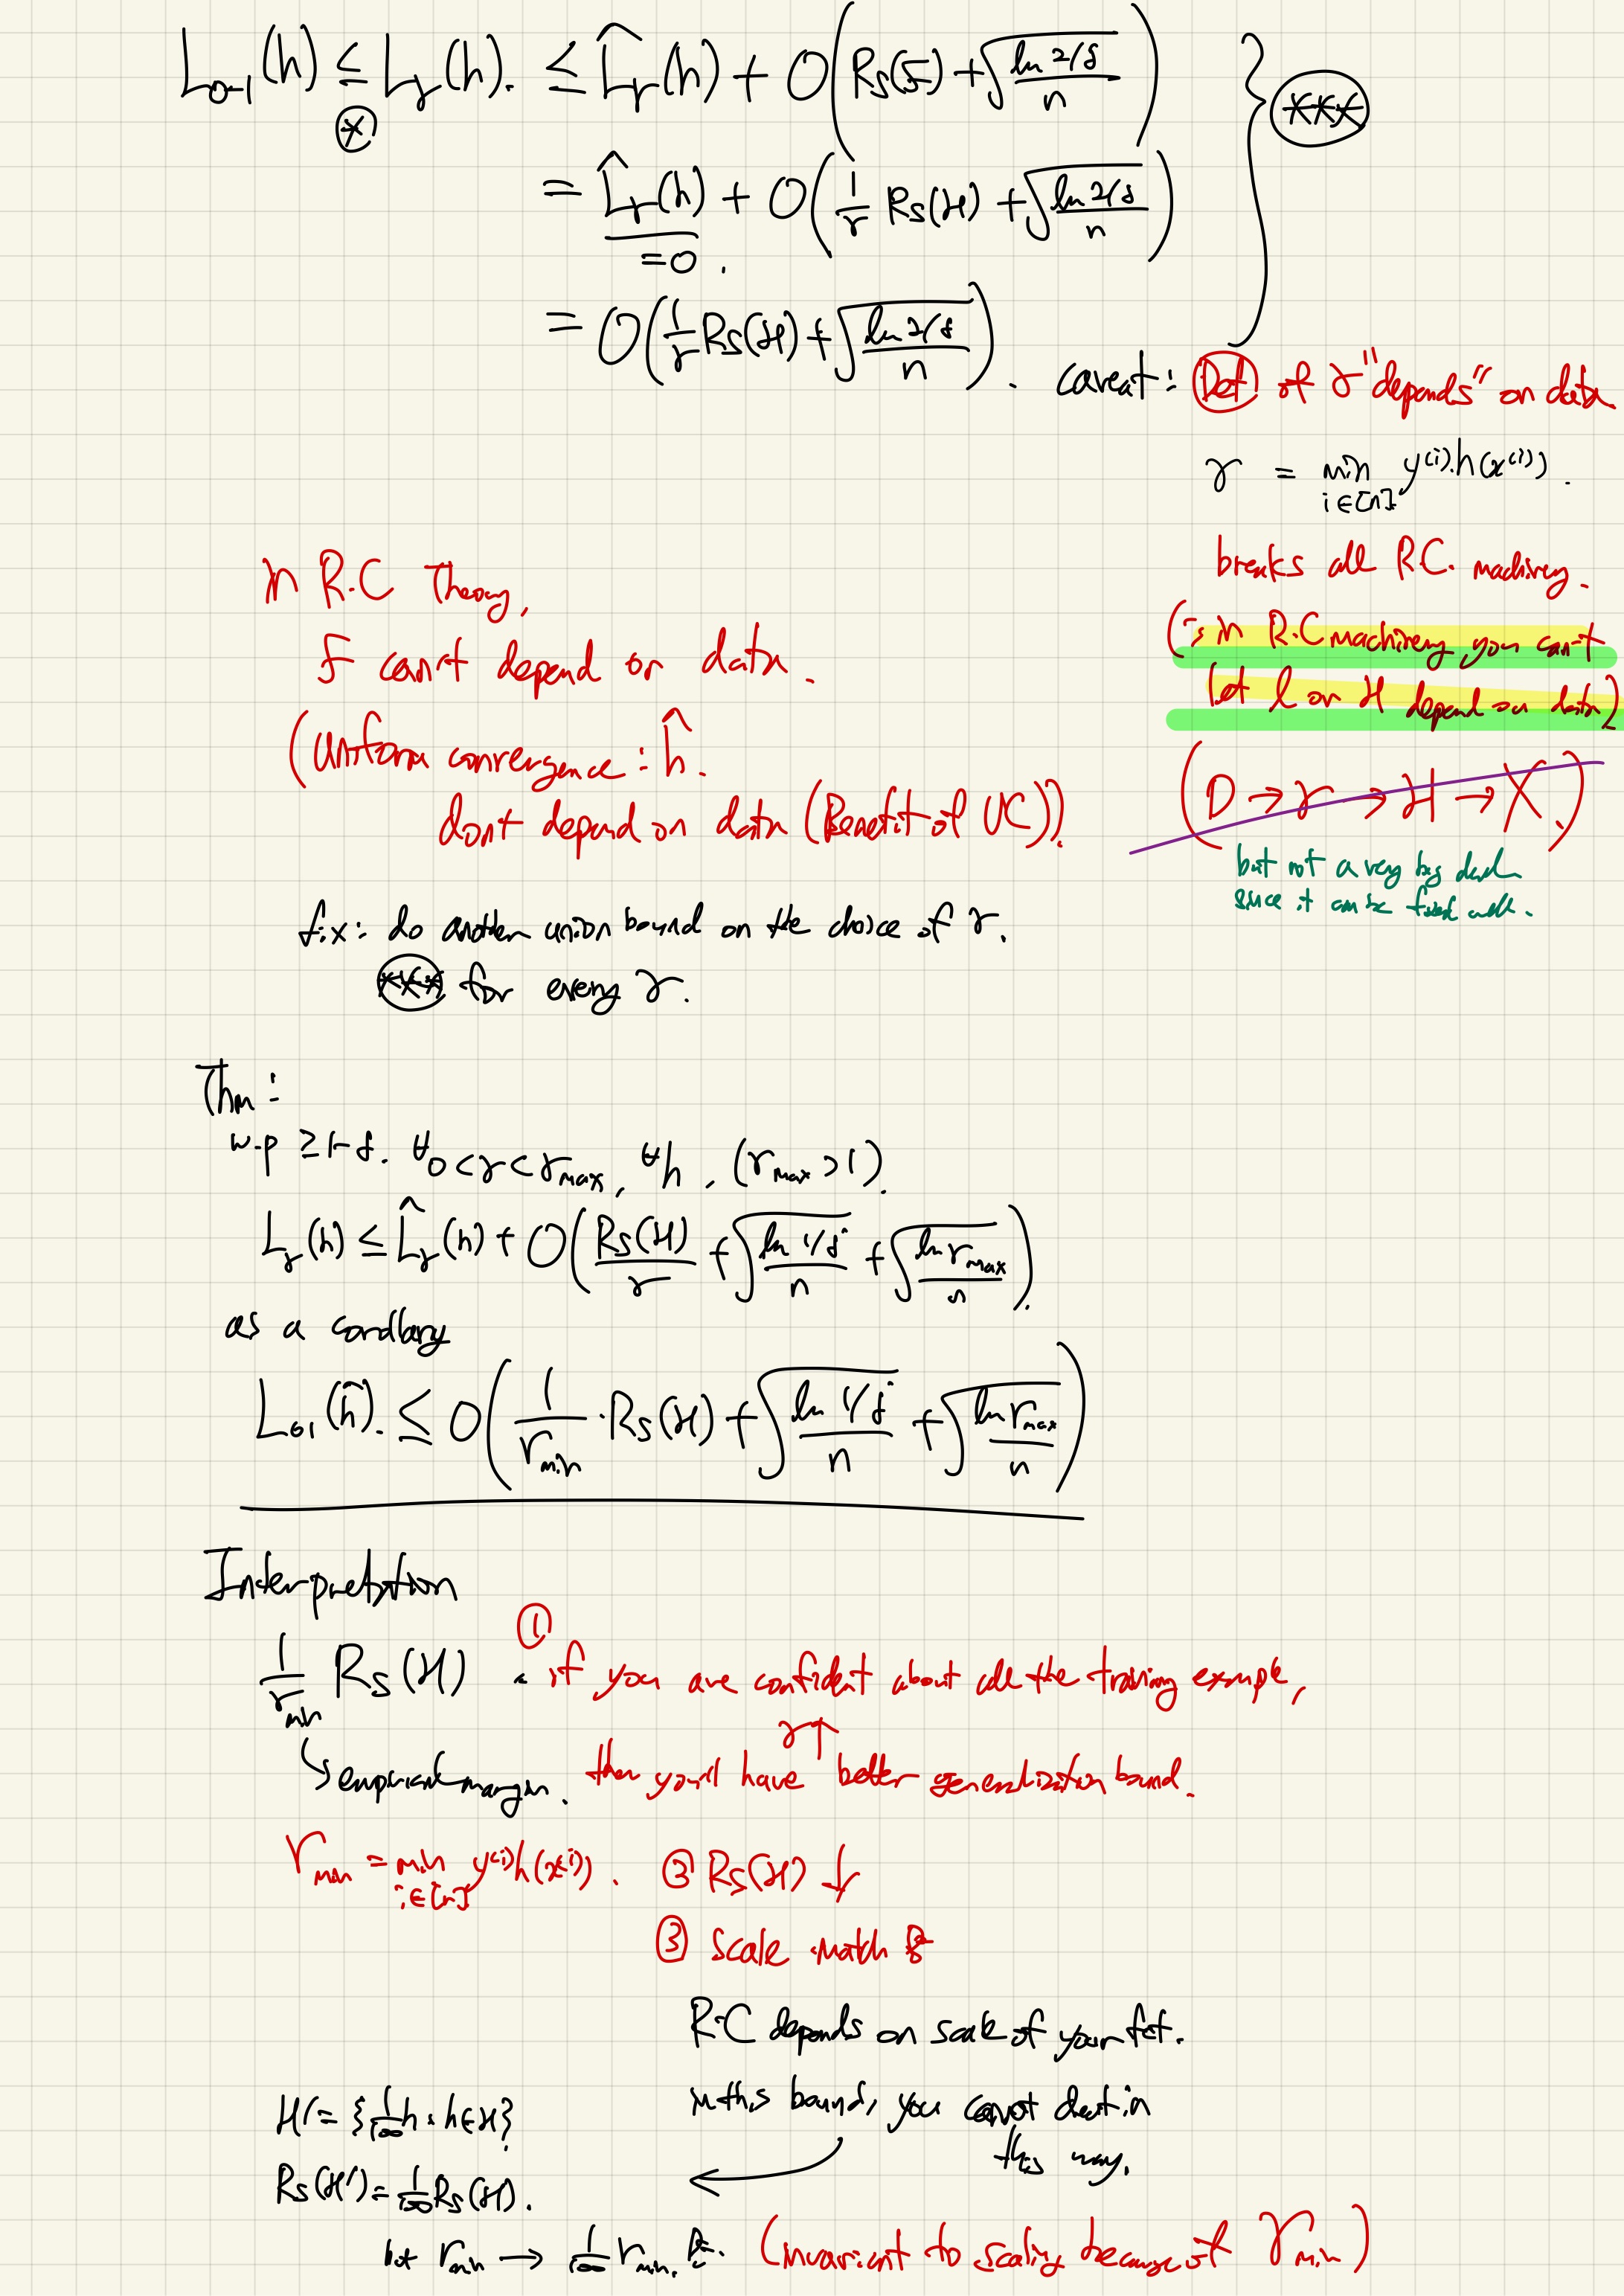 L₀₋₁(h) ≤ L_γ(h). ≤ L̂_γ(h) + O(R_S(F) + √(ln 2/δ / n))
⊛
***
= L̂_γ(h) + O(1/γ R_S(H) + √(ln 2/δ / n))
=0.
= O(1/γ R_S(H) + √(ln 2/δ / n)).
caveat: Def of γ "depends" on data
γ = min_{i∈[n]} y⁽ⁱ⁾·h(x⁽ⁱ⁾).
breaks all R.C. machinery.
(∵ in R.C machinery you can't
let l or H depend on data)
(D → γ → H → X.)
but not a very big deal
since it can be fixed with.
in R.C Theory,
F can't depend on data.
(Uniform convergence : ĥ.
don't depend on data (Benefit of UC))
fix: do another union bound on the choice of γ.
*** for every γ.
Thm:
w.p ≥ 1-δ. ∀0<γ<γ_max, ∀h, (γ_max > 1).
L_γ(h) ≤ L̂_γ(h) + O(R_S(H)/γ + √(ln 1/δ / n) + √(ln γ_max / n)).
as a corollary
L₀₁(ĥ). ≤ O(1/γ_min · R_S(H) + √(ln 1/δ / n) + √(ln γ_max / n))
Interpretation
1/γ_min R_S(H) ① if you are confident about all the training example,
γ↑
↳ empirical margin. then you'll have better generalization bound.
γ_min = min_{i∈[n]} y⁽ⁱ⁾h(x⁽ⁱ⁾). ② R_S(H) ↓
③ scale match
R.C depends on scale of your fct.
in this bound, you cannot cheat in
this way.
H' = {1/100 h : h∈H}
R_S(H') = 1/100 R_S(H).
but γ_min → 1/100 γ_min. (invariant to scaling because of γ_min)